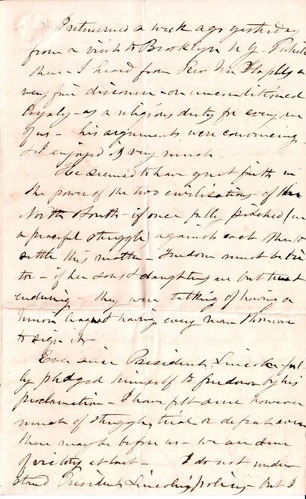 I returned a week ago yesterday
from a visit to Brooklyn N. Y. While
there I heard from Rev Mr Staples a
very fine discourse on unconditional
loyalty as a religious duty for every one of
us his arguments were convincing
& I enjoyed it very much
He seemed to have great faith in
the power of the two civilizations of the
North & South if once fully pitched in
a peaceful struggle against each other to
settle this matter Freedom must be
if her sons & daughters are but true &
enduring they were talking of having a
Union league & having every man & woman
to sign it
Ever since President Lincoln
pledged himself to freedom by his
proclamation I have felt sure however
much of struggle, trial or defeat even
there may be before us we are sure
of victory at last I do not under
stand President Lincoln's policy but I